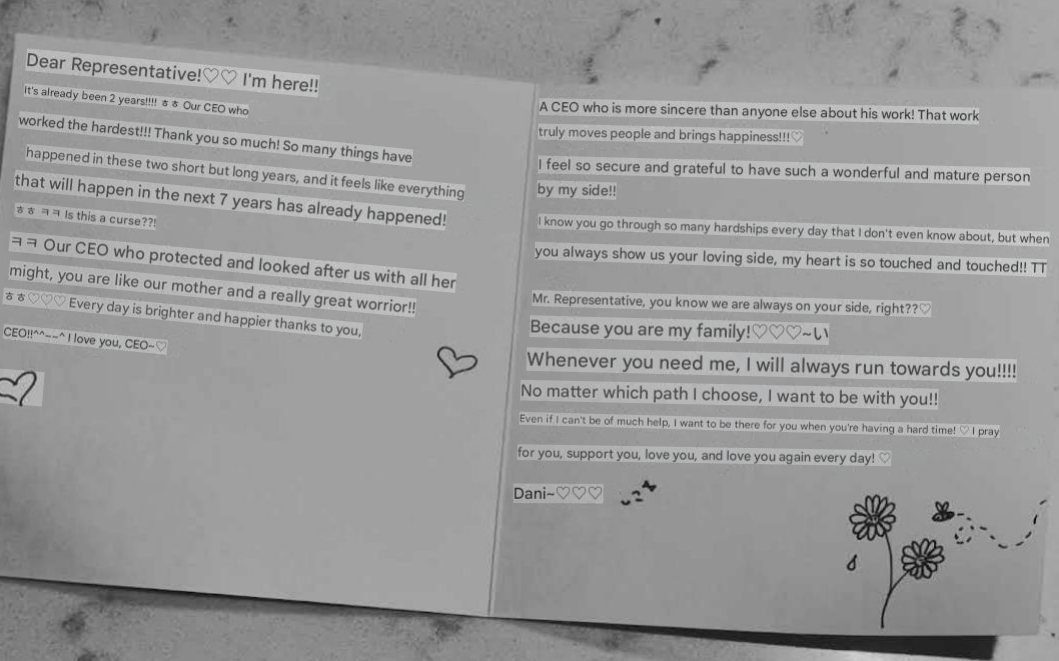 Dear Representative!♡♡ I'm here!!
It's already been 2 years!!!! ㅎㅎ Our CEO who
worked the hardest!!! Thank you so much! So many things have
happened in these two short but long years, and it feels like everything
that will happen in the next 7 years has already happened!
ㅎㅎ ㅋㅋ Is this a curse??!
ㅋㅋ Our CEO who protected and looked after us with all her
might, you are like our mother and a really great worrior!!
ㅎㅎ♡♡♡ Every day is brighter and happier thanks to you,
CEO!!^^~~^ I love you, CEO~♡
A CEO who is more sincere than anyone else about his work! That work
truly moves people and brings happiness!!!♡
I feel so secure and grateful to have such a wonderful and mature person
by my side!!
I know you go through so many hardships every day that I don't even know about, but when
you always show us your loving side, my heart is so touched and touched!! TT
Mr. Representative, you know we are always on your side, right??♡
Because you are my family!♡♡♡~い
Whenever you need me, I will always run towards you!!!!
No matter which path I choose, I want to be with you!!
Even if I can't be of much help, I want to be there for you when you're having a hard time! ♡ I pray
for you, support you, love you, and love you again every day! ♡
Dani~♡♡♡